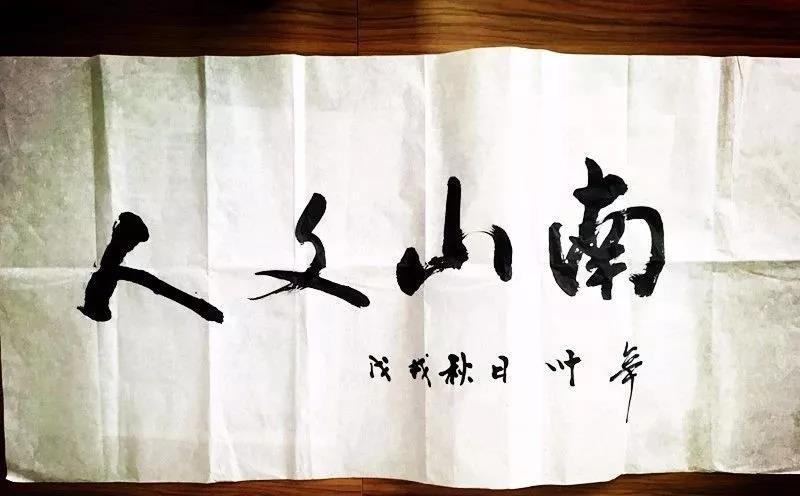 南山文人
戊戌秋日 叶辛